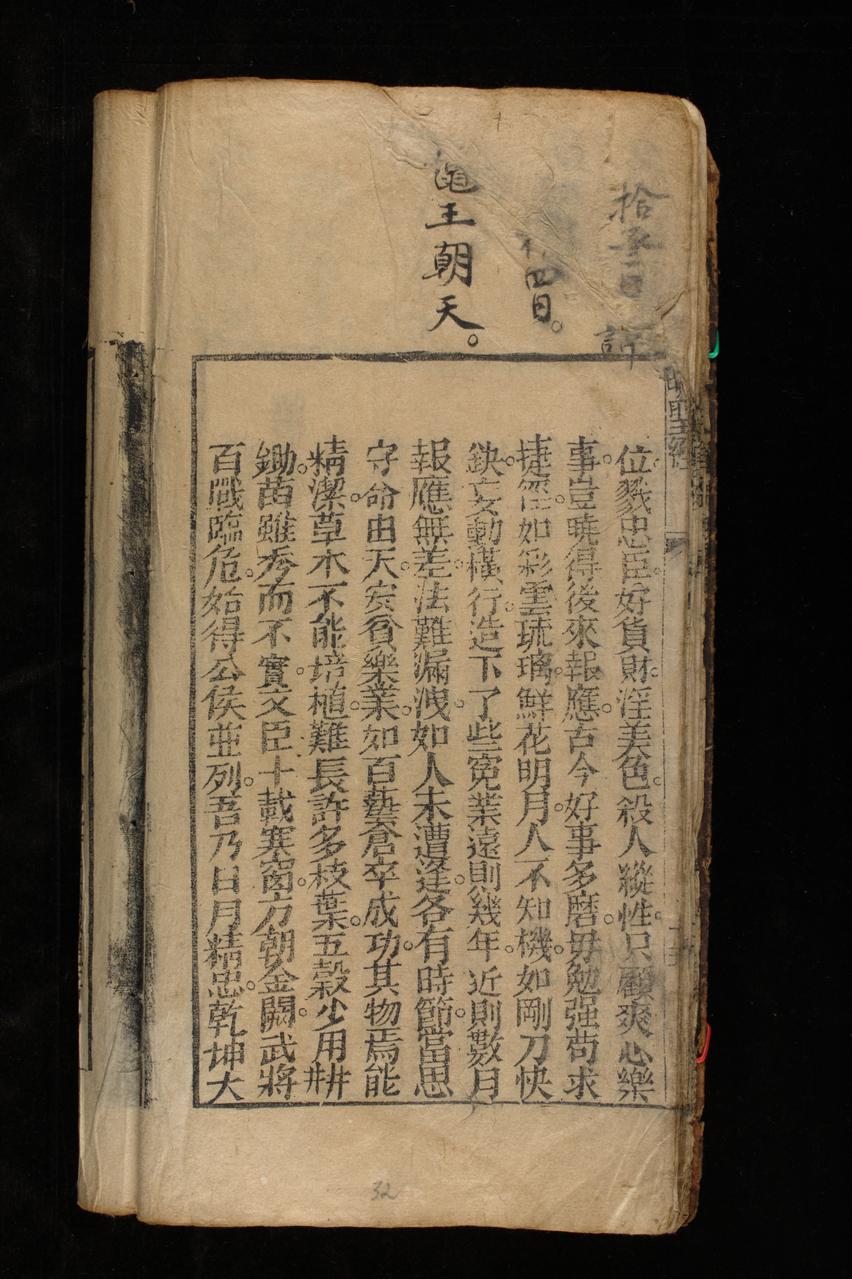 拾
日
四日。
竜王朝天。
位戮忠臣。好貨財。淫美色。殺人縱性。只顧爽心樂
事。豈曉得後來報應。古今好事多磨。毋勉强苟求
捷徑。如彩雲琉璃。鮮花明月。人不知機。如剛刀快
鈌。妄動橫行。造下了些寃業。遠則幾年。近則數月
報應無差。法難漏洩。如人未遭逢。各有時節。當思
守命由天。安貧樂業。如百藝倉卒成功。其物焉能
精潔。草木不能培植。難長許多枝葉。五穀少用耕
鋤。苗雖秀而不實。文臣十載寒窗。方朝金闕。武將
百戰臨危。始得公侯並列。吾乃日月精忠。乾坤大
聖經
32